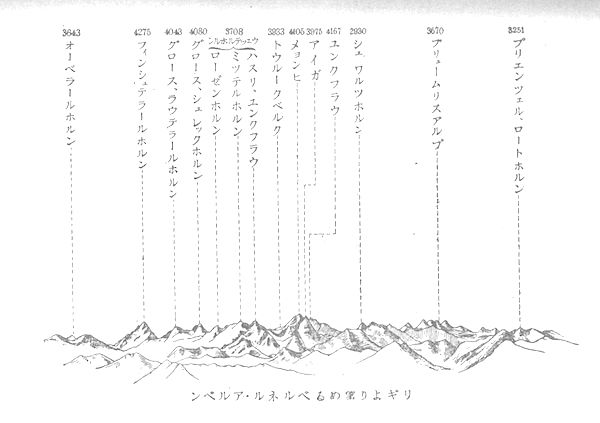 3251
ブリエンツェル、ロートホルン
3670
ブリュームリスアルプ
2930
シュワルツホルン
4167
ユンクフラウ
3975
アイガ
4105
メョンヒ
3933
トウルークベルク
3708
ウェッテルホルン
ハスリ、ユンクフラウ
ミッテルホルン
ローゼンホルン
4080
グロース、シュレックホルン
4043
グロース、ラウテラールホルン
4275
フィンシュテラールホルン
3643
オーベラールホルン
リギより望めるベルネル・アルペン